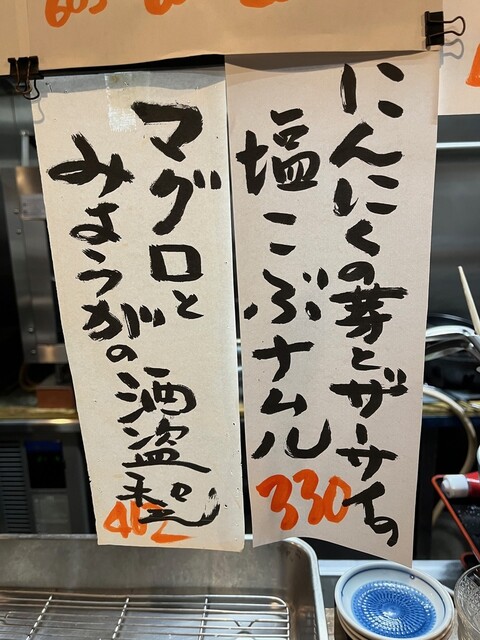 にんにくの芽とザーサイの
塩こぶナムル
330
マグロと
みょうがの酒盗和え
462